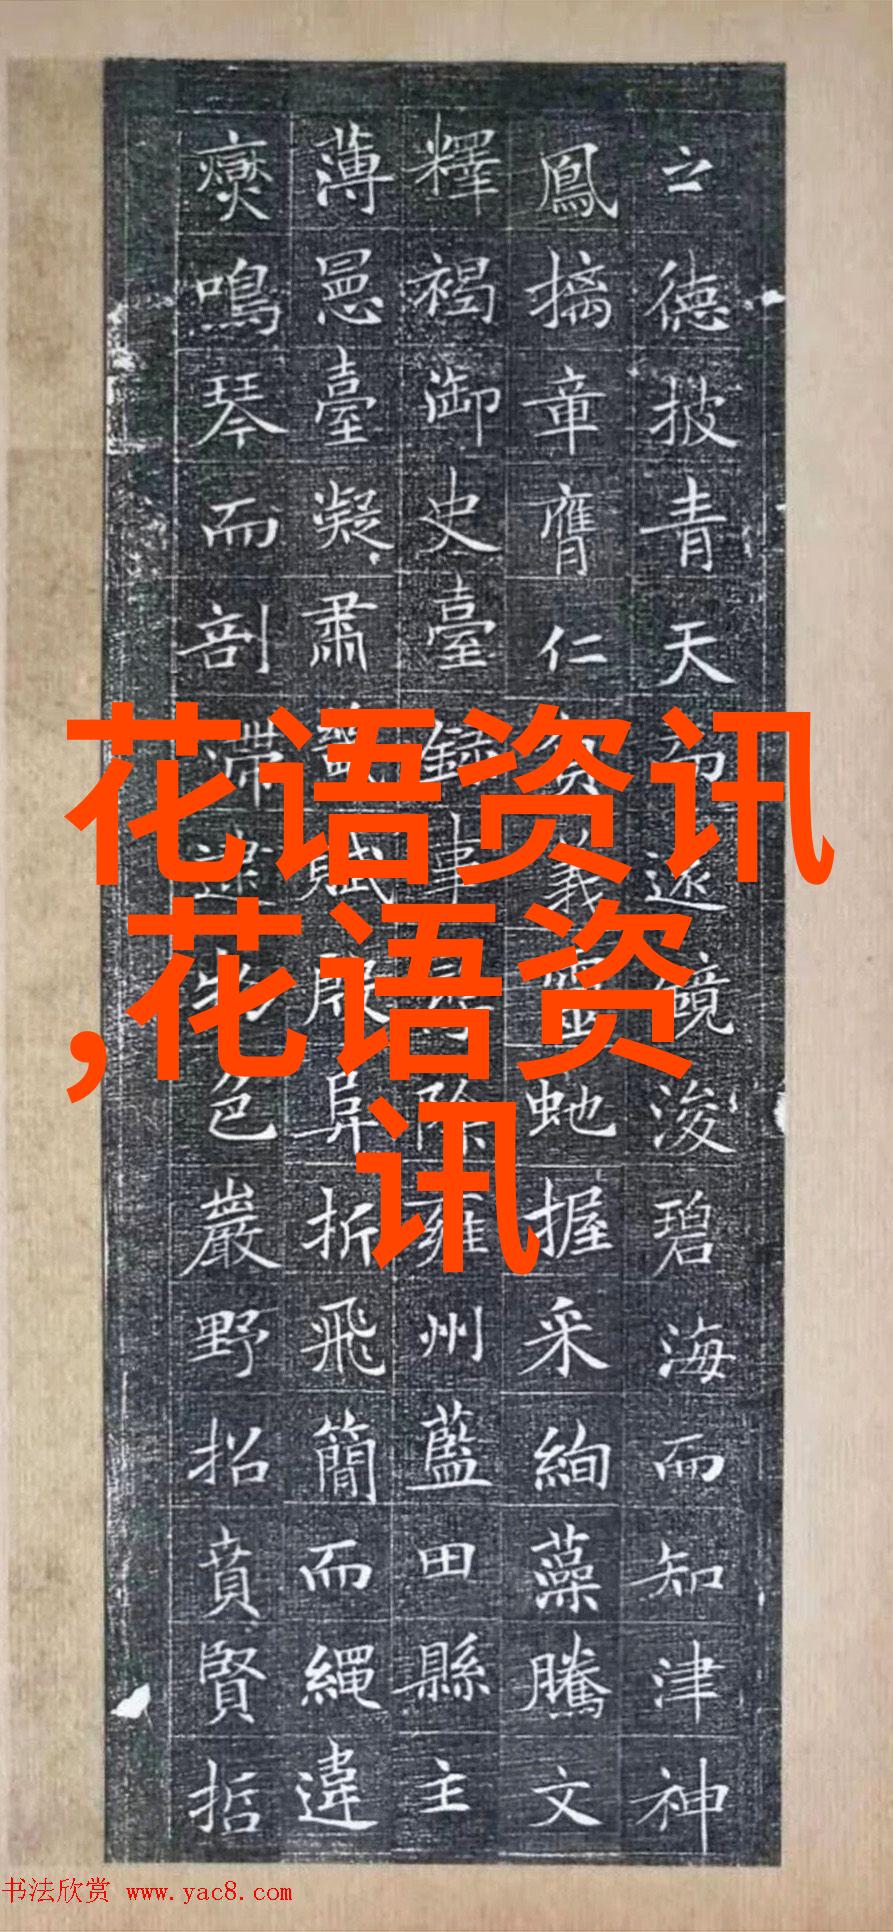 之德披青天而鏡浚碧海而知津神
鳳摛章膺仁義靈虵握采絢藻騰文
釋褐御史臺錄事除雍州藍田縣主
薄臺凝肅賦殷阜折飛簡而繩違
鳴琴而剖滯逮物色巖野招賁賢哲
花语资讯
,花语资
讯
书法欣赏 www.yac8.com